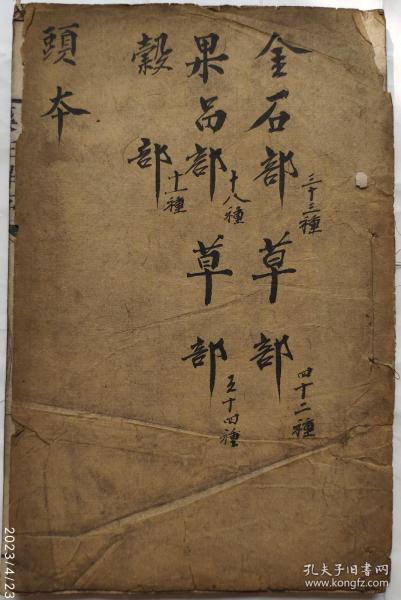 金石部三十三種草部四十二種
果品部十八種草部五十四種
穀部十一種
頭本
2023/4/23
孔夫子旧书网
www.kongfz.com